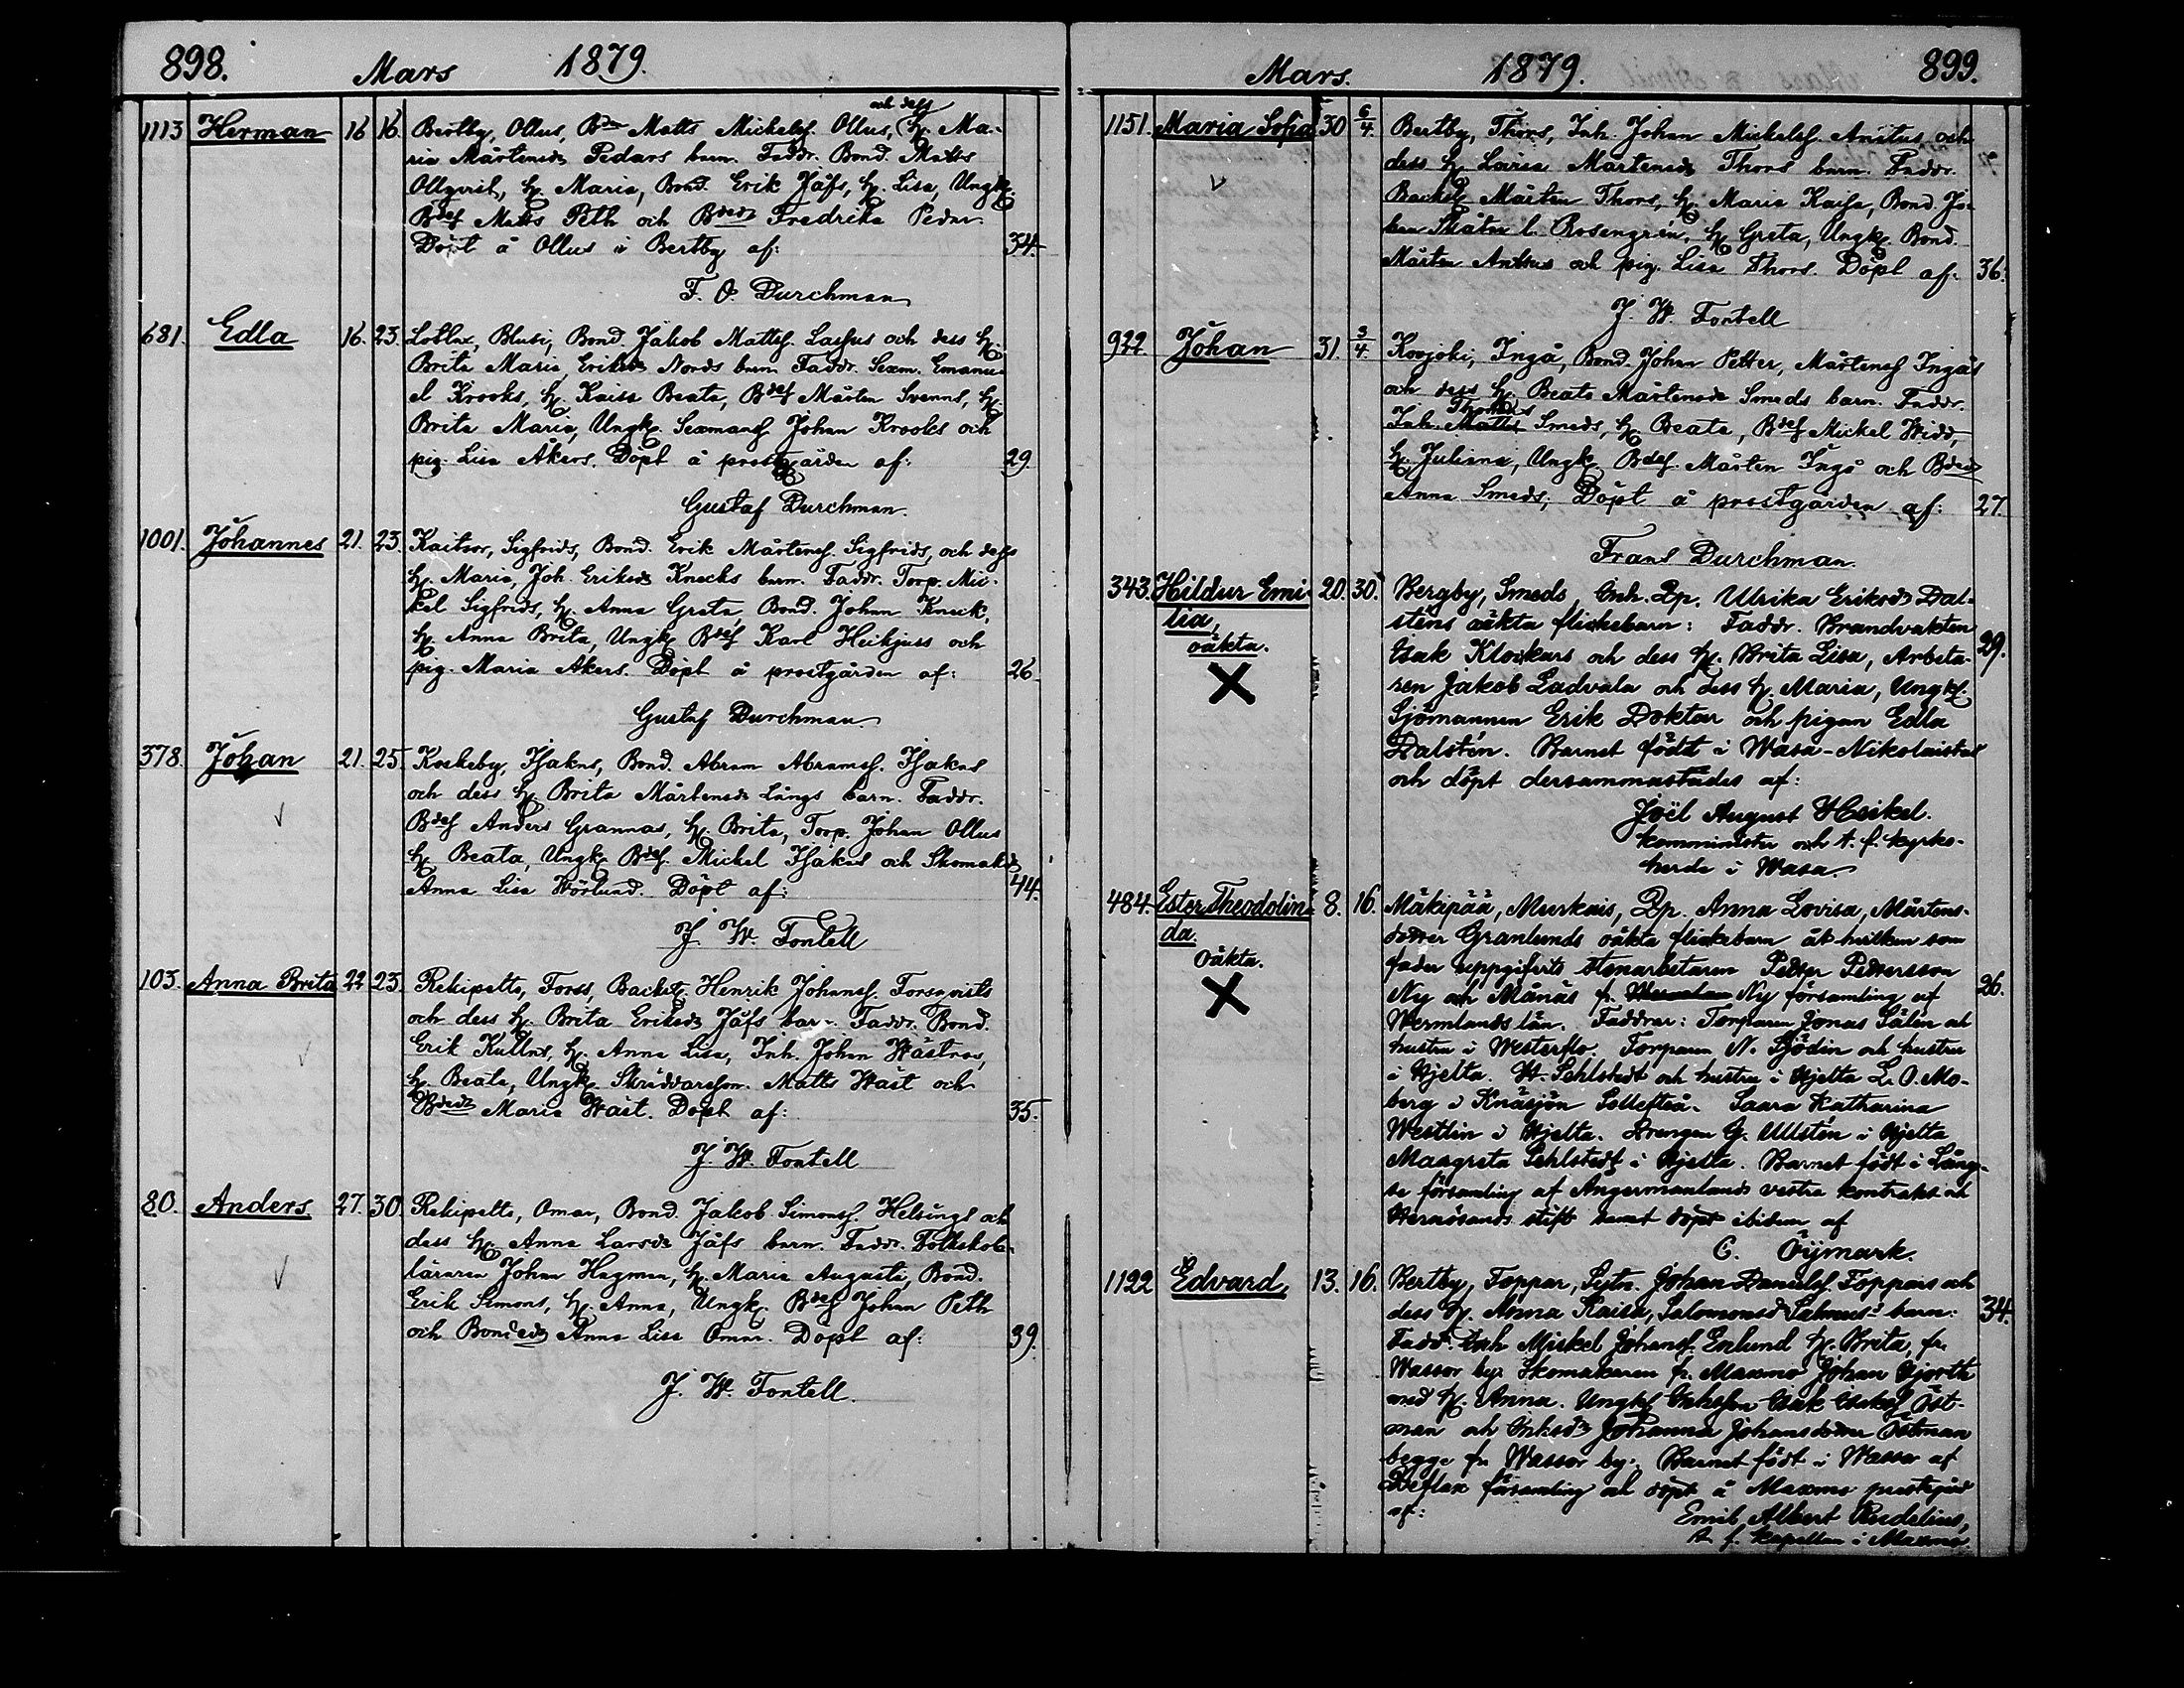 898. Mars 1879.
1113 Herman 16 16. Bertby, Ollus, Bdn Matts Michelss. Ollus, och dess h. Ma-
ria Mårtensdr Pedars barn. Faddr. Bond. Matts
Ollqvist, h. Maria, Bond. Erik Jåfs, h. Lisa, Ungk.
Bdes Matts Peth och Bdedr Fredrika Pedar.
Döpt å Ollus i Bertby af: 34.
F. O. Durchman
681. Edla 16. 23. Lotlax, Blusi, Bond. Jakob Mattss. Lassus och dess h.
Brita Maria, Eriksdr Nords barn Faddr. Sexm. Emanu-
el Krooks, h. Kaisa Beata, Bdes Mårten Svenns, h.
Brita Maria, Ungk. Sexmans. Johan Krooks och
pig. Lisa Åkers. Döpt å prostgården af: 29.
Gustaf Durchman.
1001. Johannes 21. 23. Kaitsor, Sigfrids, Bond. Erik Mårtenss. Sigfrids, och dess
h. Maria, Joh. Eriksdr Knecks barn. Faddr. Torp. Mic-
kel Sigfrids, h. Anna Greta, Bond. Johan Kneck,
h. Anna Brita, Ungk. Bdes Karl Heikjuss och
pig. Maria Akers. Döpt å prostgården af: 26
Gustaf Durchman.
378. Johan 21. 25. Koskeby, Isakas, Bond. Abram Abramss. Isakas
och dess h. Brita Mårtensdr Långs barn. Faddr.
Bdes Anders Grannas, h. Brita, Torp. Johan Ollus
h. Beata, Ungk. Bdes. Mickel Isakas och Skomakdr
Anna Lisa Wörlund. Döpt af: 44.
J. W. Fontell
103. Anna Brita 22 23. Rekipelto, Forss, Backst. Henrik Johanss. Forsqvists
och dess h. Brita Eriksdr Jåfs barn. Faddr. Bond.
Erik Kullns, h. Anna Lisa, Inh. Johan Wästros,
h. Beata, Ungk. Skräddarsson. Matts Wäst och
Bdedr Maria Wäst. Döpt af: 35.
J. W. Fontell
80. Anders 27. 30. Rekipelto, Omar, Bond. Jakob Simonss. Helsings och
dess h. Anna Larsdr Jåfs barn. Faddr. Folkskole-
läraren Johan Hagman, h. Maria Augusta, Bond.
Erik Simons, h. Anna, Ungk. Bdes Johan Peth
och Bondedr Anna Lisa Omar. Döpt af: 39.
J. W. Fontell.
Mars. 1879. 899.
1151. Maria Sofia 30 6/4. Bertby, Thors, Inh. Johan Mickelss. Anttus och
dess h. Lovisa Mårtensdr Thors barn. Faddr.
Backst. Mårten Thors, h. Maria Kaisa, Bond. Jo-
han Måtar l. Rosengrén, h. Greta, Ungk. Bond.
Mårten Anttus och pig. Lisa Thors. Döpt af. 36.
J. W. Fontell
922. Johan 31. 3/4 Kovjoki, Ingå, Bond. Johan Petter, Mårtenss. Ingås
och dess h. Beata Mårtensdr Smeds barn. Faddr.
Inh. Matts Thomas Smeds, h. Beata, Bdes Mickel Widd,
h. Juliana, Ungk. Bdes. Mårten Ingå och Bdedr
Anna Smeds, Döpt å prostgården af: 27.
Frans Durchman.
343. Hildur Emi- 20. 30. Bergby, Smeds, Inh. Lp. Ulrika Eriksdr Dal-
lia, sténs oäkta flickebarn: Faddr. Brandvakten
oäkta. Isak Klockars och dess h. Brita Lisa, Arbeta- 29.
ren Jakob Ladvala och dess h. Maria, Ungk.
Sjömannen Erik Doktar och pigan Edla
Dalstén. Barnet födt i Wasa-Nikolaistad
och döpt dersammastädes af:
Joël August Heikel.
komminister och t. f. kyrko-
herde i Wasa.
484. Ester Theodolin- 8. 16. Mäkipää, Murkais, Lp. Anna Lovisa, Mårtens-
da. dotter Granlunds oäkta flickebarn åt hvilken som
Oäkta. fader uppgifvits stenarbetaren Petter Pettersson
Ny och Månäs fr. Ny församling af 26.
Wermlands län. Faddrar: Torparen Jonas Sälén och
hustru i Westerflo. Torparen N. Sjödin och hustru
i Hjelta. W. Sehlstedt och hustru i Hjelta L. O. Mo-
berg i Knäsjön Sollefteå. Saara Katharina
Westlin i Hjelta. Drengen G. Ullsten i Hjelta
Margreta Sehlstedt i Hjelta. Barnet födt i Lång-
se församling af Ångermanlands vestra kontrakt och
Hernösands stift samt döpt ibidem af
C. Öijmark.
1122 Edvard, 13. 16. Bertby, Foppar, Sytn. Johan Danielss. Foppars och
dess h. Anna Kaisa, Salomonsdr barn: 34.
Faddr. Inh. Mickel Johanss. Enlund h. Brita, fr.
Wassor by. Skomakaren fr. Maxmo Johan Hjorth
med h. Anna. Ungk. Inhsson Isak Isakss Öst-
man och Inhsdr Johanna Johansdotter Östman
begge fr. Wassor by. Barnet födt i Wassor af
församling och döpt å Maxmo prestgård
af:
Emil Albert Rudelius,
t. f. kapellan i Maxmo